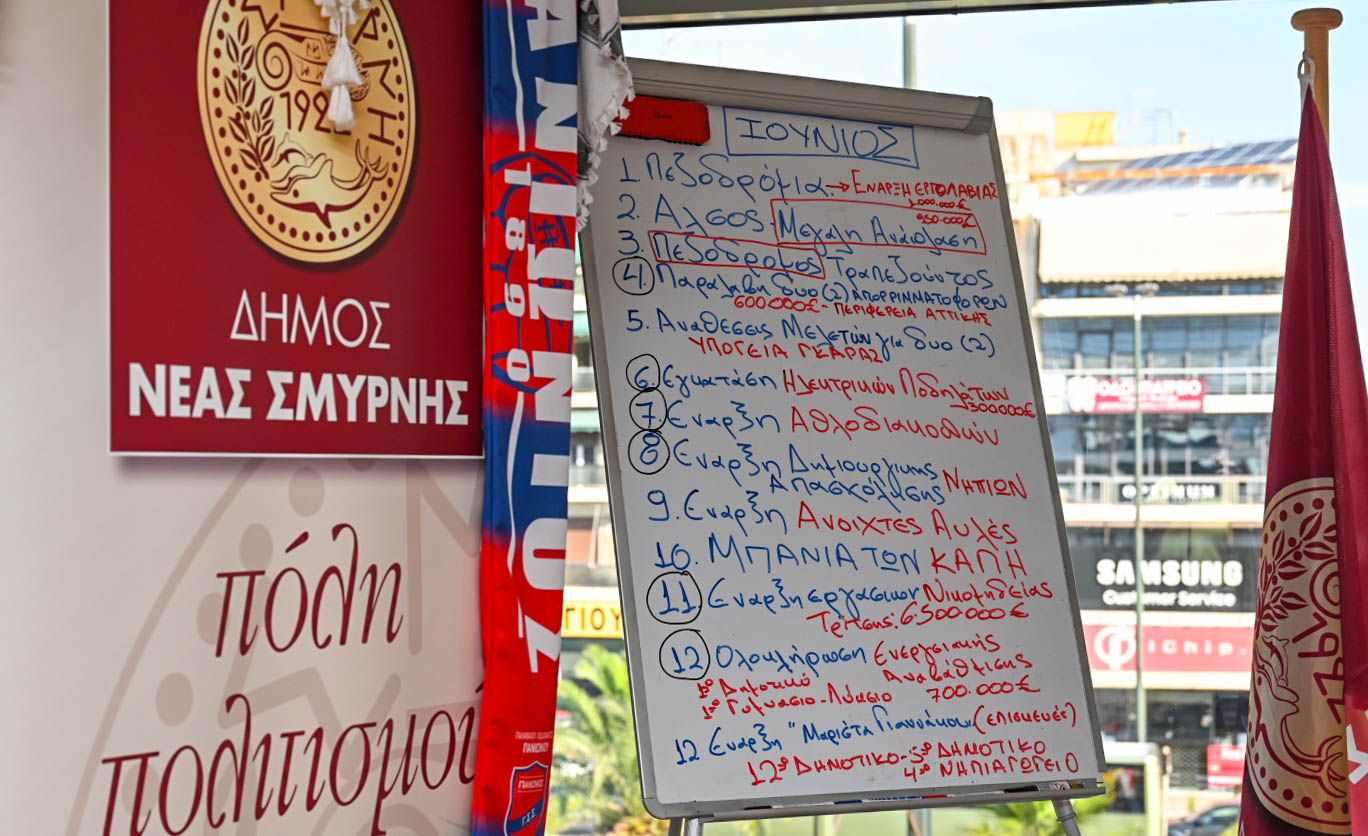 1922
ΔΗΜΟΣ
ΝΕΑΣ ΣΜΥΡΝΗΣ
πόλη
πολιτισμού
1890
ΠΑΝΙΩΝΙΟΣ
Γ.Σ.Σ.
ΙΟΥΝΙΟΣ
1. Πεζοδρόμια → ΕΝΑΡΞΗ ΕΡΓΟΛΑΒΙΑΣ
1.000.000€
950.000€
2. Αλσος - Μεγαλη Ανάπλαση
3. Πεζοδρομος Τραπεζούντος
4. Παραλαβή δυο (2) ΑΠΟΡΡΙΜΜΑΤΟΦΟΡΩΝ
600.000€ - ΠΕΡΙΦΕΡΕΙΑ ΑΤΤΙΚΗΣ
5. Αναθεσεις Μελετών για δυο (2)
ΥΠΟΓΕΙΑ ΓΚΑΡΑΖ
6. Εγκατάση Ηλεκτρικών Ποδηλάτων
300000€
7 Εναρξη Αθλοδιακοπών
8 Εναρξη Δημιουργικης ΝΗΠΙΩΝ
Απασχόλησης
9. Εναρξη Ανοιχτες Αυλές
10. ΜΠΑΝΙΑ ΤΩΝ ΚΑΠΗ
11 Εναρξη εργασιων Νικομηδείας
Τρίτσης: 6.500.000 €
12 Ολοκλήρωση Ενεργειακής
Αναβάθμισης
1ο Δημοτικό
1ο Γυμνασιο - Λύκειο 700.000€
12 Εναρξη "Μαριέτα Γιαννάκου" (επισκευές)
12ο ΔΗΜΟΤΙΚΟ - 5ο ΔΗΜΟΤΙΚΟ
4ο ΝΗΠΙΑΓΩΓΕΙΟ
OPTIMUM
SAMSUNG
Customer Service
ichip.